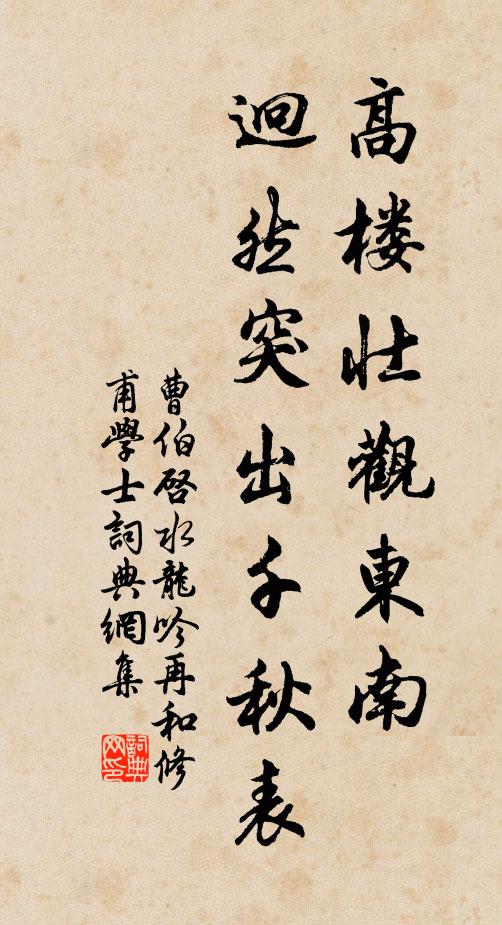 高楼壮觀東南
迥然突出千秋表
曹伯啓水龍吟再和修
甫學士詞典網集
詞典網印